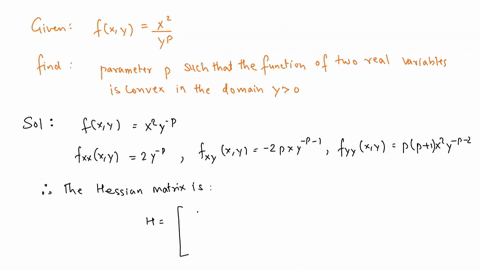 Given: f(x,y) = x²/y^p
find: parameter p such that the function of two real variables
is convex in the domain y>0
Sol: f(x,y) = x²y^-p
fxx(x,y) = 2y^-p , fxy(x,y) = -2pxy^-p-1, fyy(x,y) = p(p+1)x²y^-p-2
∴ The Hessian matrix is:
H = [